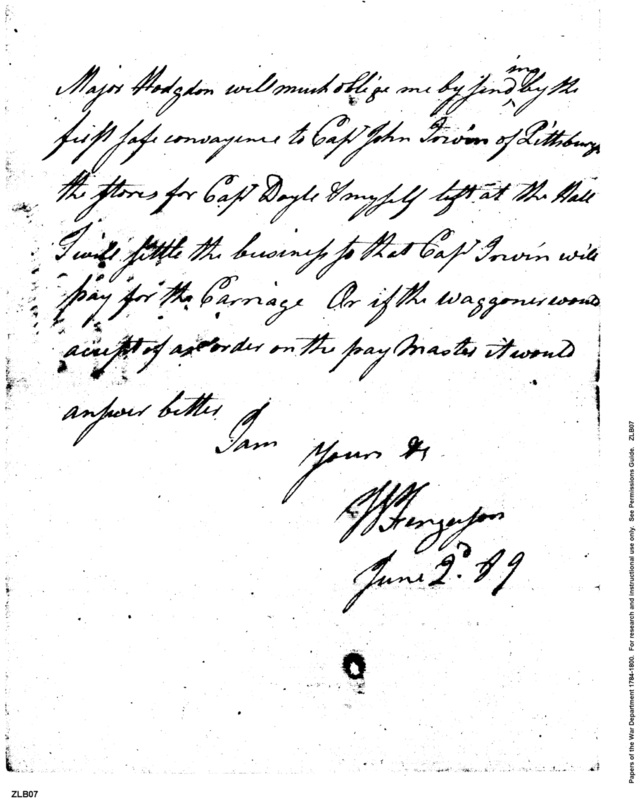 Major Hodgdon will much oblige me by sending by the
first safe convayence to Capt John Irwin of Pittsburg
the stores for Capt Doyle & myself left at the Hall
I will settle the business so that Capt Irwin will
pay for the Carriage Or if the waggoner would
accept of an order on the pay Master it would
answer better
I am yours &c
W Ferguson
June 2d. 89
Papers of the War Department 1784-1800. For research and instructional use only. See Permissions Guide. ZLB07
ZLB07